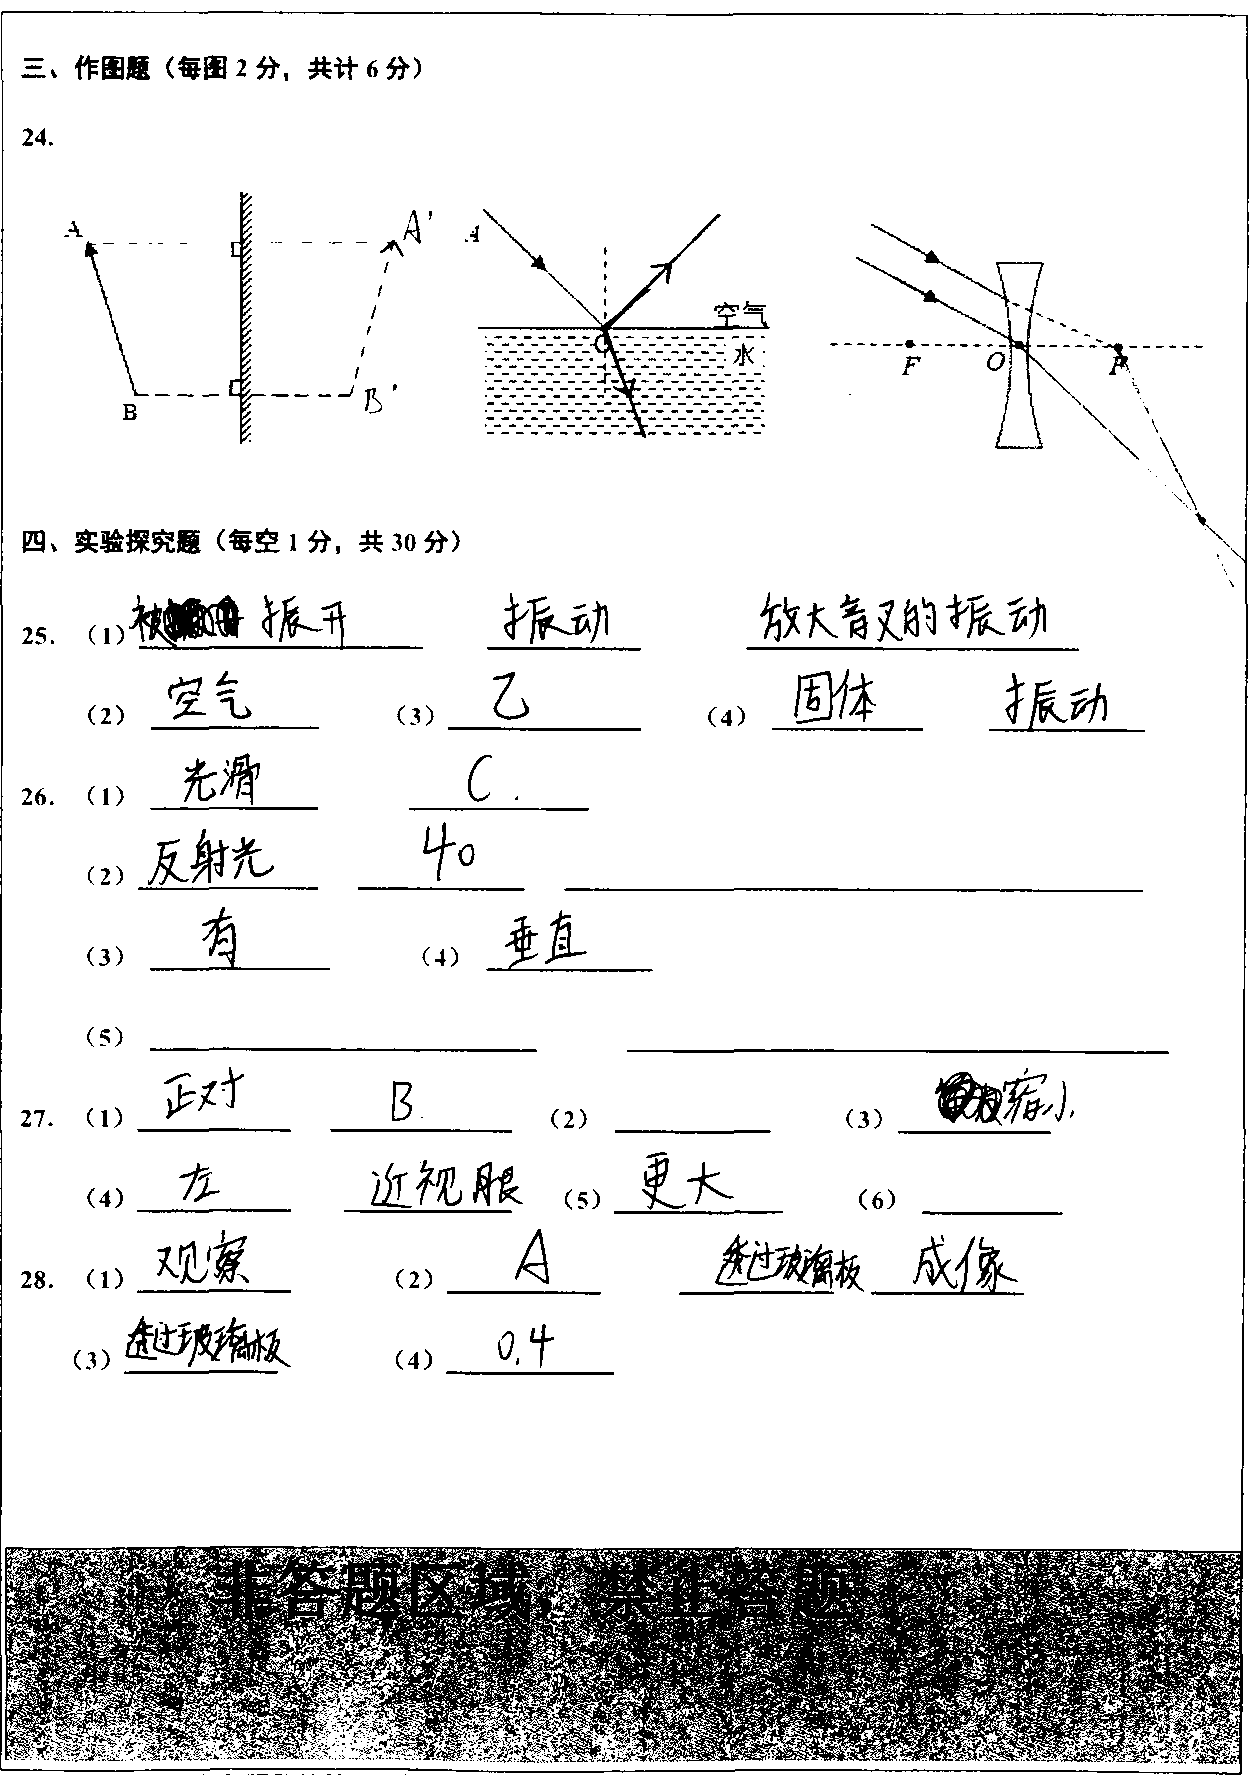 三、作图题（每图 2 分，共计 6 分）
24.
A A' B B'
A O 空气 水
F O F
四、实验探究题（每空 1 分，共 30 分）
25. （1） 被 振开 振动 放大音叉的振动
（2） 空气 （3） 乙 （4） 固体 振动
26. （1） 光滑 C.
（2） 反射光 40
（3） 有 （4） 垂直
（5）
27. （1） 正对 B. （2） （3） 缩小
（4） 左 近视眼 （5） 更大 （6）
28. （1） 观察 （2） A 透过玻璃板 成像
（3） 透过玻璃板 （4） 0.4
非答题区域，禁止答题